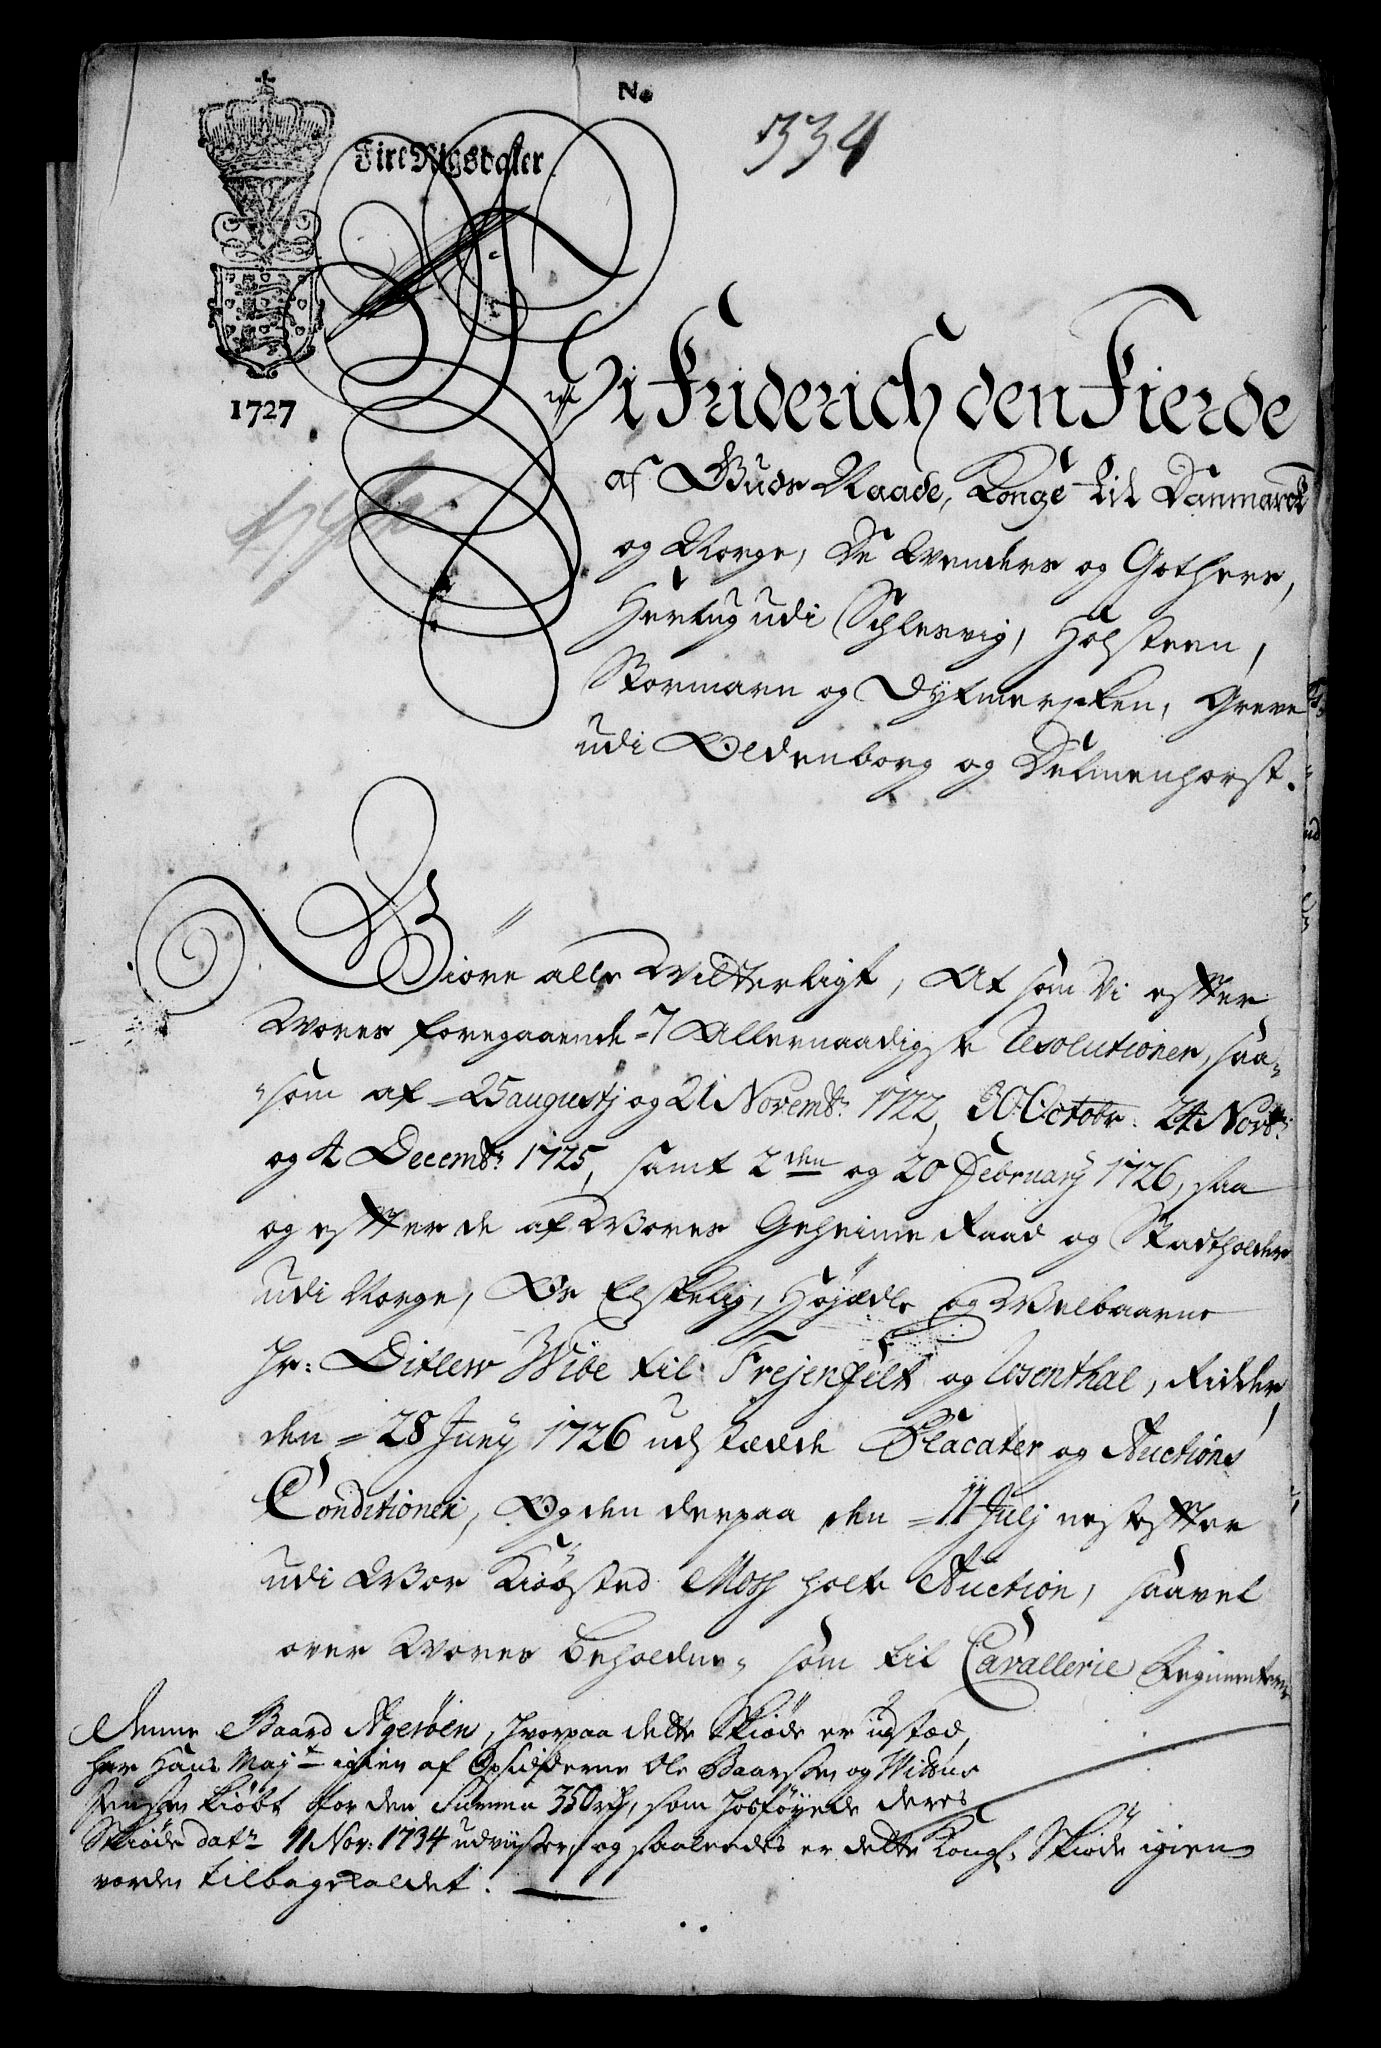 No
334
Fire Rigsdaler
1727
Vi Friderich den Fierde
af Guds Naade, Konge til Danmarck
og Norge, De Wenders og Gothers,
Hertug udi Schlesvig, Holsteen,
Stormarn og Dytmersken, Greve
udi Oldenborg og Delmenhorst.
Giøre alle Witterligt, At som Vi effter
Wores foregaaende 7 Allernaadigste Resolutioner, saa-
som af 25 augustj og 21 Novembr: 1722, 30 Octobr. 24 Novbr:
og 4 Decembr: 1725, samt 2den og 20 February 1726, saa
og effter de af Wores Geheime Raad og Stadtholder
udi Norge, Os Elskelig, Høyædle og Welbaarne
Hr: Ditlew Wibe til Frejenfelt og Rosenthal, Ridder,
den 28 Juny 1726 udstædde Placater og Auctions
Conditioner, Og den derpaa den 11 Julj nestefter
udi Wor Kiøbsted Moss holte Auction, saavel
over Wores beholdne, som til Cavallerie Regimenterne
Denne Gaard Agerøen, hvorpaa dette Skiøde er udstæd,
har Hans Mayt igien af Opsidderne Ole Baarsen og
kiøbt for den Summa 350 rd, som hosføyede deres
Skiøde dat: 11 Nov: 1734 udviiser, og saaledes er dette Kongl: Skiøde igien
vorden tilbagekaldet.